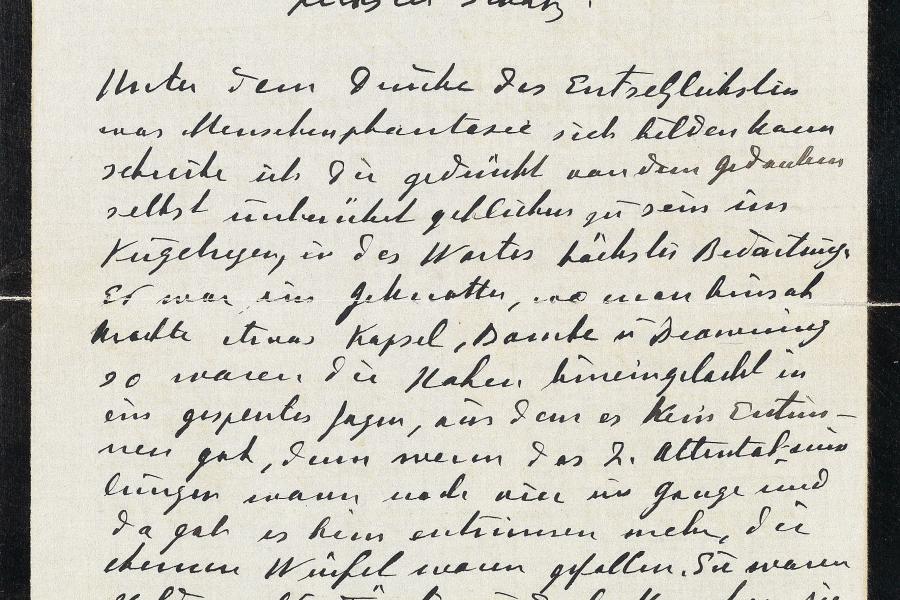 Unter dem Drucke des Entsetzlichsten
was Menschenphantasie sich bilden kann
schreibe ich dir gedrückt von dem Gedanken
selbst unberührt geblieben zu sein im
Kugelregen, in des Wortes höchster Bedeutung.
Es war ein geknatter, wo man hinsah
krachte etwas Kapsel, Bombe u Browning
so waren die Hohen hineingelockt in
ein gesperrtes Jagen, aus dem es Kein Entrin-
nen gab, denn wenn das 2. Attentat
lungen wann noch vier im Gange und
da gab es kein entrinnen mehr, die
ehernen Würfel waren gefallen. Sie waren